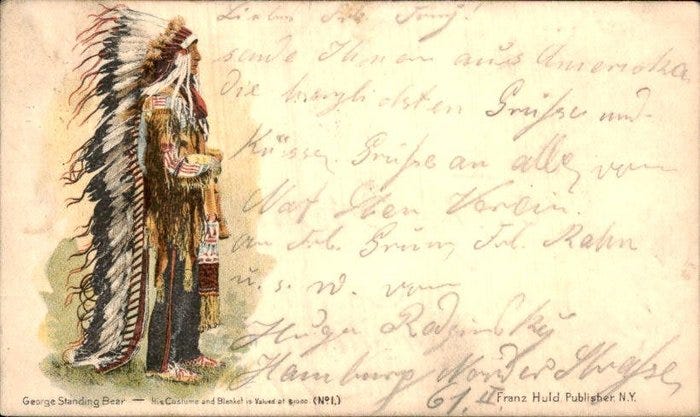 Liebes Frl. Jenny!
sende Ihnen aus Amerika
die herzlichsten Grüsse und
Küsse. Grüsse an alle, vom
Verein.
an Frl. Grün, Frl. Rahn
u. s. w. von
Hugo
Hamburg Norder Strasse
61. II.
George Standing Bear — His Costume and Blanket is Valued at $1000. (No 1.)
Franz Huld, Publisher, N.Y.